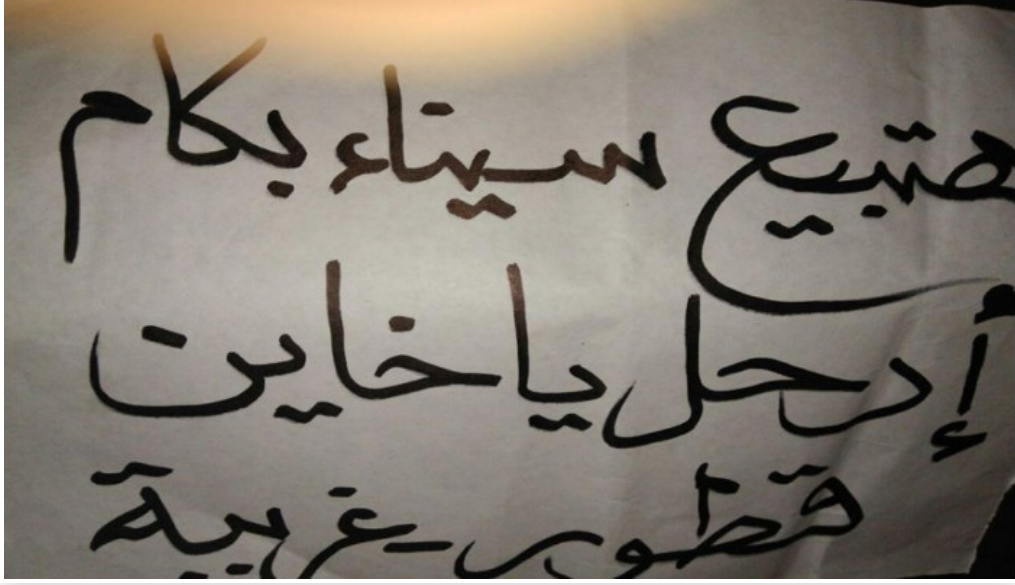 هتبيع سيناء بكام
إرحل يا خاين
قطور غربية